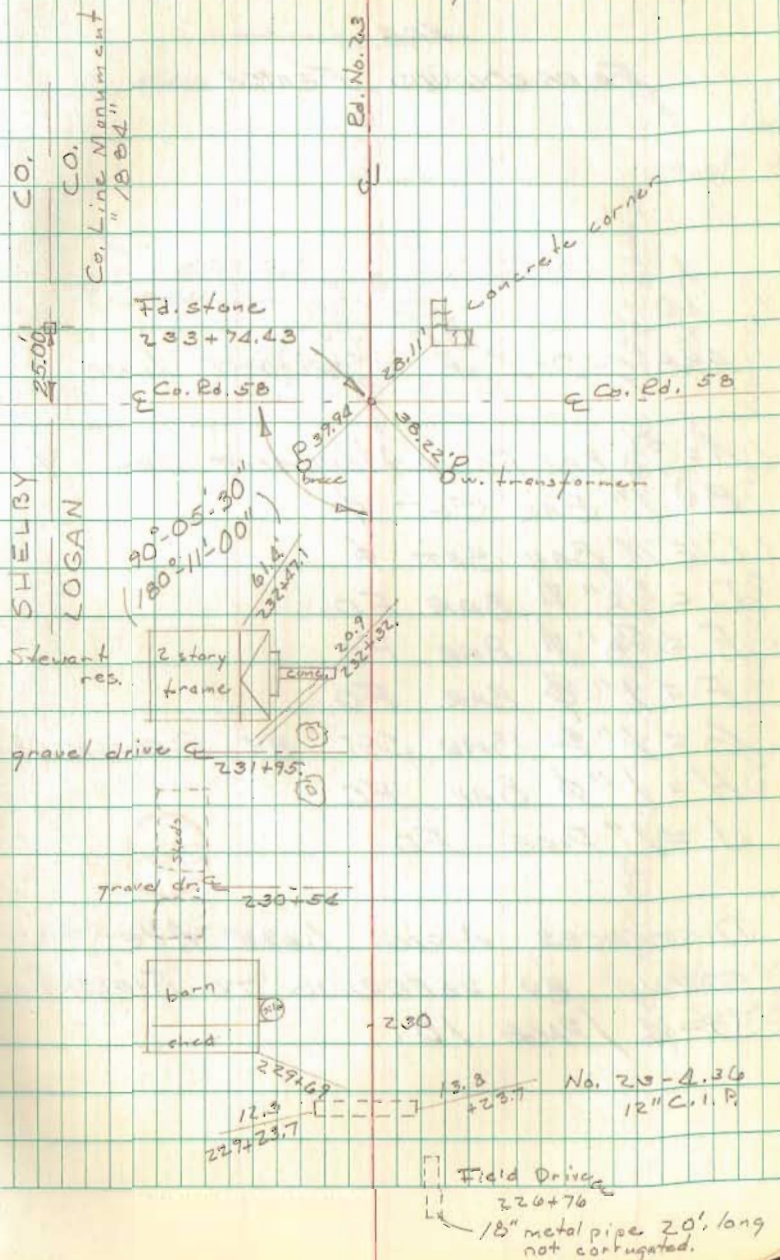 Rd. No. 23
℄
SHELBY CO.
LOGAN CO.
25.00'
Co. Line Monument
"1884"
concrete corner
Fd. stone
233+74.43
28.11'
℄ Co. Rd. 58
℄ Co. Rd. 58
39.94
38.22'
brace
w. transformer
90°-05'-30"
(180°-11'-00")
61.4'
232+47.1
20.9
232+32.
Stewart
res.
2 story
frame
conc.
gravel drive ℄
231+95.
sheds
gravel dr. ℄
230+54
barn
shed
silo
230
229+69
12.3
229+23.7
13.3
+23.7
No. 23-4.36
12" C.I.P.
Field Drive ℄
226+76
18" metal pipe 20'. long
not corrugated.